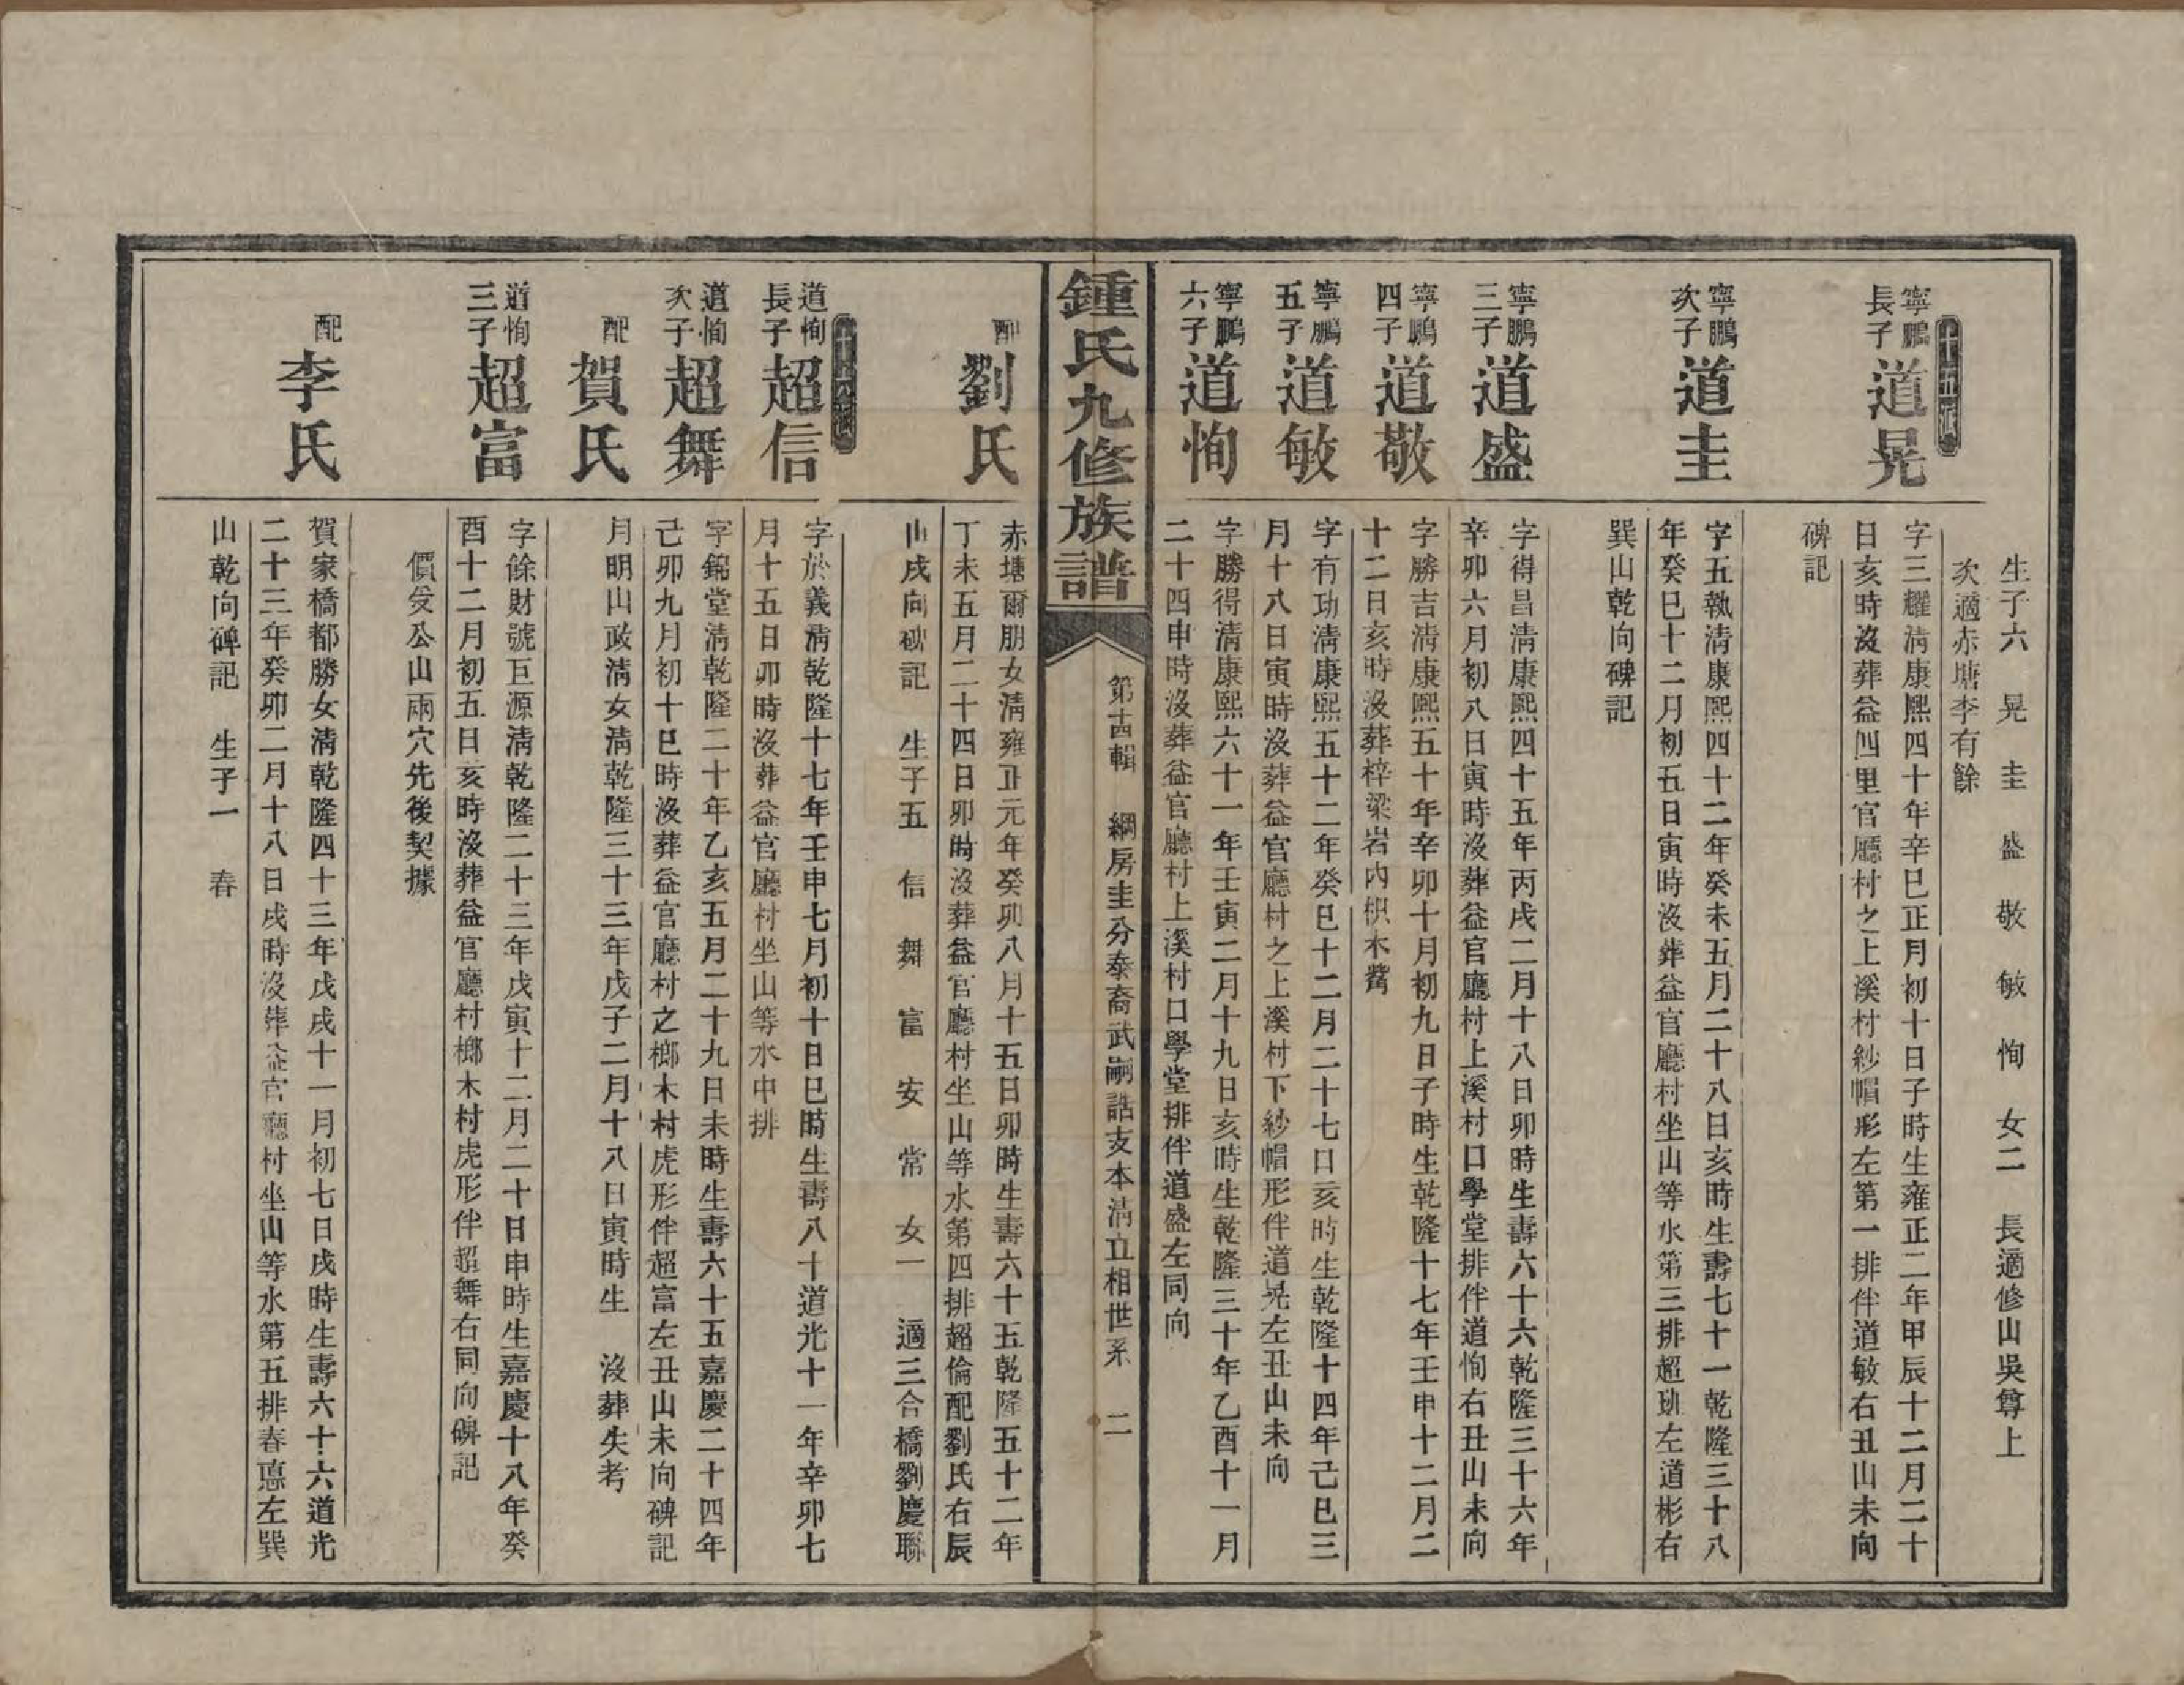 生子六 晃 圭 盛 敬 敏 恂 女二 長適修山吳尊上
次適赤塘李有餘
十五派
寧鵬長子 道晃
字三耀清康熙四十年辛巳正月初十日子時生雍正二年甲辰十二月二十
日亥時沒葬益四里官廳村之上溪村紗帽形左第一排伴道敏右丑山未向
碑記
寧鵬次子 道圭
字五執清康熙四十二年癸未五月二十八日亥時生壽七十一乾隆三十八
年癸巳十二月初五日寅時沒葬益官廳村坐山等水第三排超珖左道彬右
巽山乾向碑記
寧鵬三子 道盛
字得昌清康熙四十五年丙戌二月十八日卯時生壽六十六乾隆三十六年
辛卯六月初八日寅時沒葬益官廳村上溪村口學堂排伴道恂右丑山未向
寧鵬四子 道敬
字勝吉清康熙五十年辛卯十月初九日子時生乾隆十七年壬申十二月二
十二日亥時沒葬梓梁岩內枳木
寧鵬五子 道敏
字有功清康熙五十二年癸巳十二月二十七日亥時生乾隆十四年己巳三
月十八日寅時沒葬益官廳村之上溪村下紗帽形伴道晃左丑山未向
寧鵬六子 道恂
字勝得清康熙六十一年壬寅二月十九日亥時生乾隆三十年乙酉十一月
二十四申時沒葬益官廳村上溪村口學堂排伴道盛左同向
鍾氏九修族譜
第十四輯 綱房圭分泰裔武嗣誥支本清立相世系 二
配 劉氏
赤塘爾朋女清雍正元年癸卯八月十五日卯時生壽六十五乾隆五十二年
丁未五月二十四日卯時沒葬益官廳村坐山等水第四排超倫配劉氏右辰
山戌向碑記 生子五 信 舞 富 安 常 女一 適三合橋劉慶聯
十六派
道恂長子 超信
字於義清乾隆十七年壬申七月初十日巳時生壽八十道光十一年辛卯七
月十五日卯時沒葬益官廳村坐山等水中排
道恂次子 超舞
字錦堂清乾隆二十年乙亥五月二十九日未時生壽六十五嘉慶二十四年
己卯九月初十巳時沒葬益官廳村之榔木村虎形伴超富左丑山未向碑記
配 賀氏
月明山政清女清乾隆三十三年戊子二月十八日寅時生 沒葬失考
道恂三子 超富
字餘財號巨源清乾隆二十三年戊寅十二月二十日申時生嘉慶十八年癸
酉十二月初五日亥時沒葬益官廳村榔木村虎形伴超舞右同向碑記
價受公山兩穴先後契據
配 李氏
賀家橋都勝女清乾隆四十三年戊戌十一月初七日戌時生壽六十六道光
二十三年癸卯二月十八日戌時沒葬益官廳村坐山等水第五排春憙左巽
山乾向碑記 生子一 春